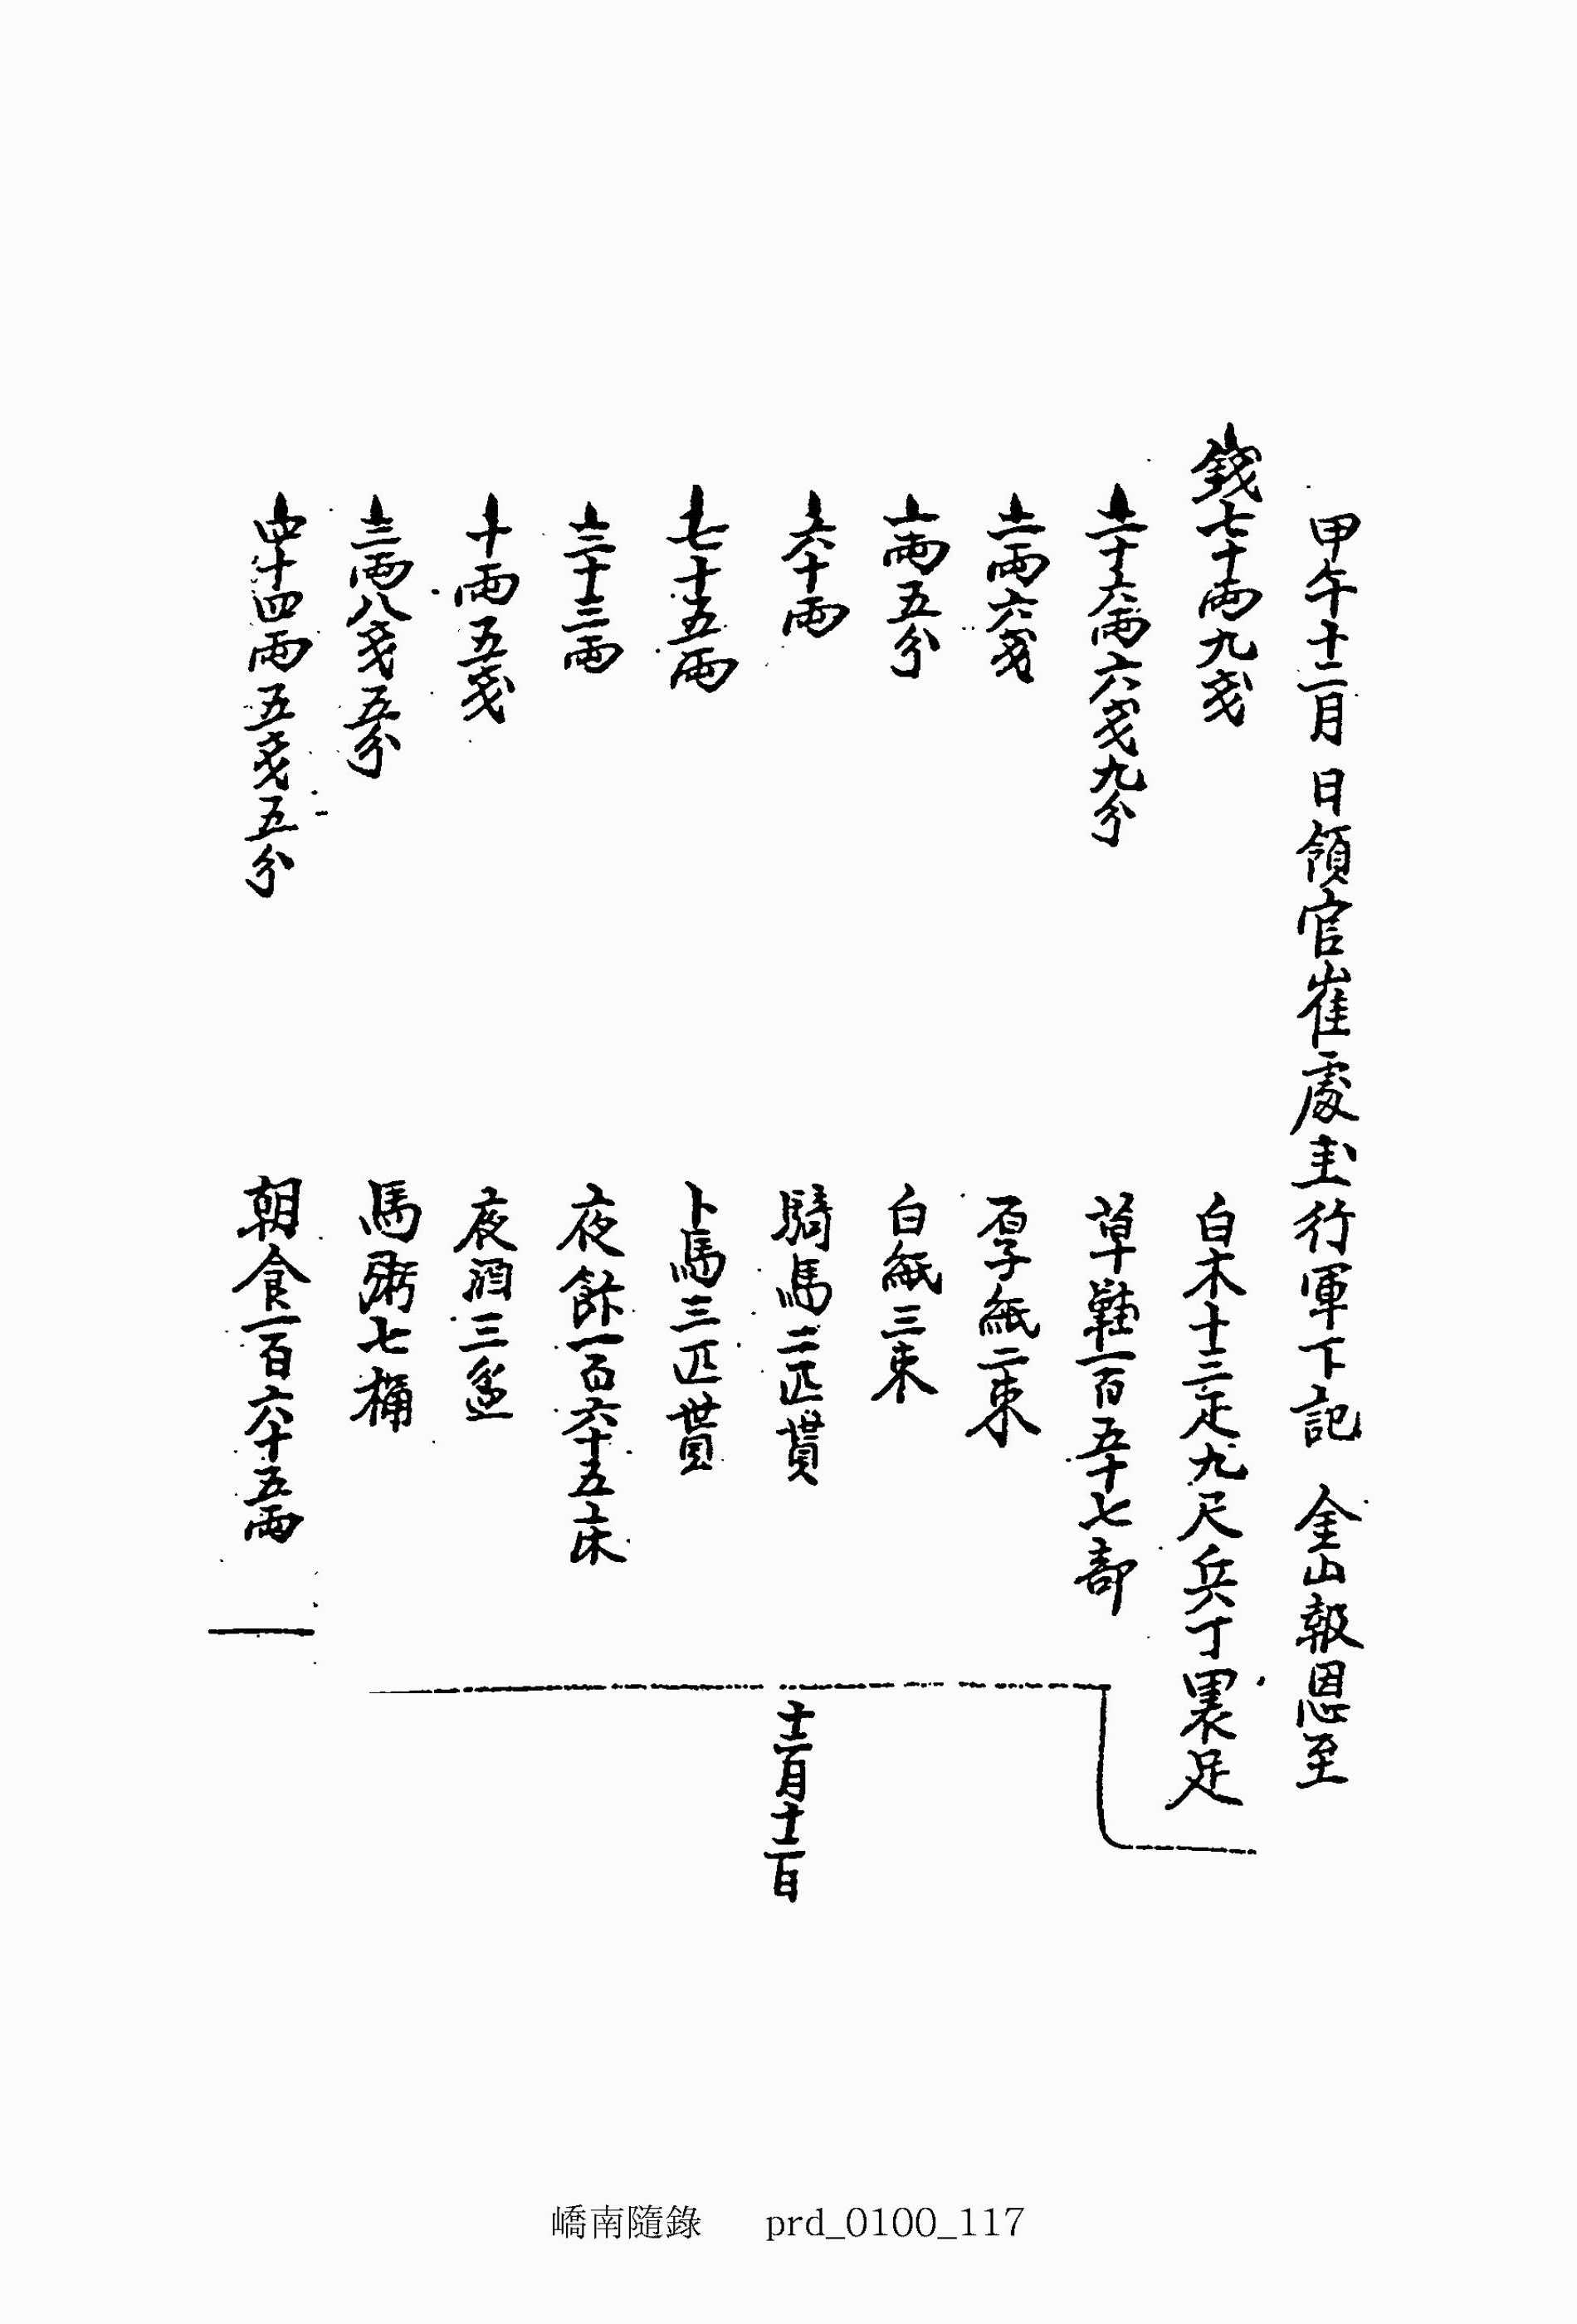 甲午十二月 日領官崔處圭行軍下記 金山報恩至
錢七十両九戔 白木十三疋九尺兵丁裹足
二十六両六戔九分 草鞋一百五十七部
二両六戔 厚紙二束
一両五分 白紙三束
六十両 騎馬二匹貰
七十五両 卜馬三匹貰
十二月十二日
三十三両 夜飵一百六十五床
十両五戔 夜酒三盆
三両八戔五分 馬粥七桶
四十四両五戔五分 朝食一百六十五両
嶠南隨錄 prd_0100_117